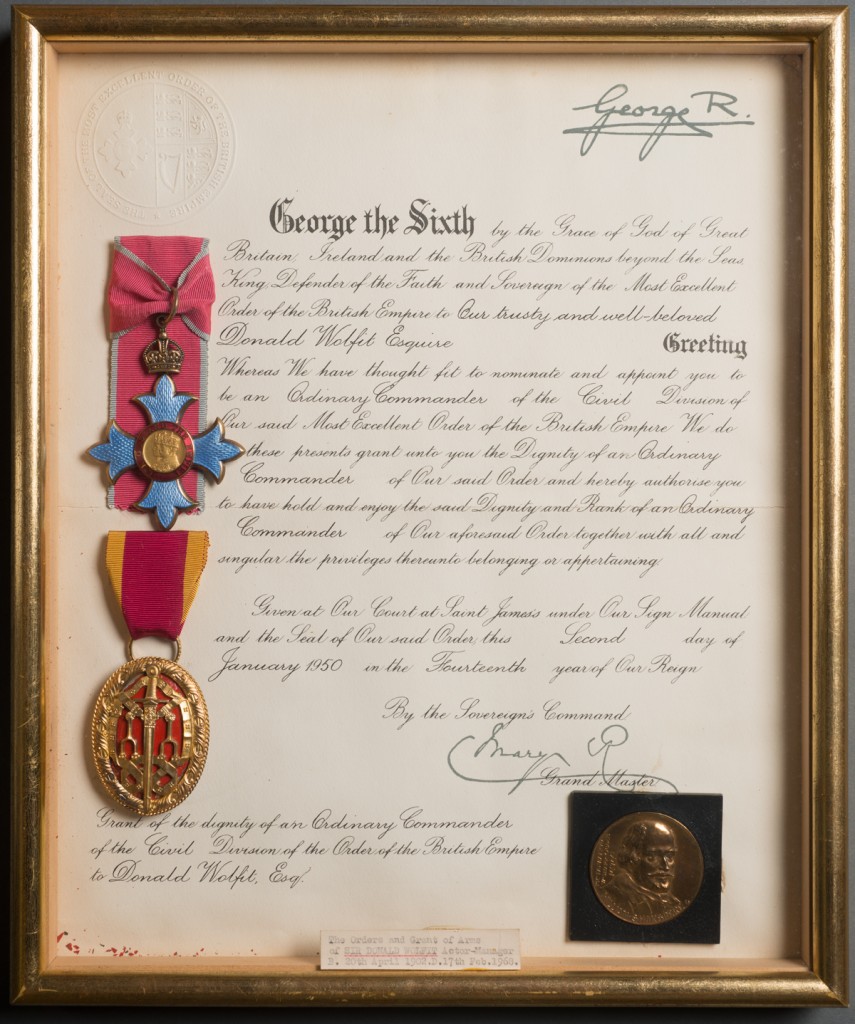 THE SEAL OF THE MOST EXCELLENT ORDER OF THE BRITISH EMPIRE
George R.
George the Sixth by the Grace of God of Great
Britain, Ireland and the British Dominions beyond the Seas,
King, Defender of the Faith and Sovereign of the Most Excellent
Order of the British Empire to Our trusty and well-beloved
Donald Wolfit Esquire Greeting
Whereas We have thought fit to nominate and appoint you to
be an Ordinary Commander of the Civil Division of
Our said Most Excellent Order of the British Empire We do
these presents grant unto you the Dignity of an Ordinary
Commander of Our said Order and hereby authorise you
to have hold and enjoy the said Dignity and Rank of an Ordinary
Commander of Our aforesaid Order together with all and
singular the privileges thereunto belonging or appertaining.
Given at Our Court at Saint James's under Our Sign Manual
and the Seal of Our said Order this Second day of
January 1950 in the Fourteenth year of Our Reign
By the Sovereign's Command
Mary R
Grand Master
Grant of the dignity of an Ordinary Commander
of the Civil Division of the Order of the British Empire
to Donald Wolfit, Esq.
The Orders and Grant of Arms
of SIR DONALD WOLFIT Actor-Manager
B. 20th April 1902.D.17th Feb.1968.